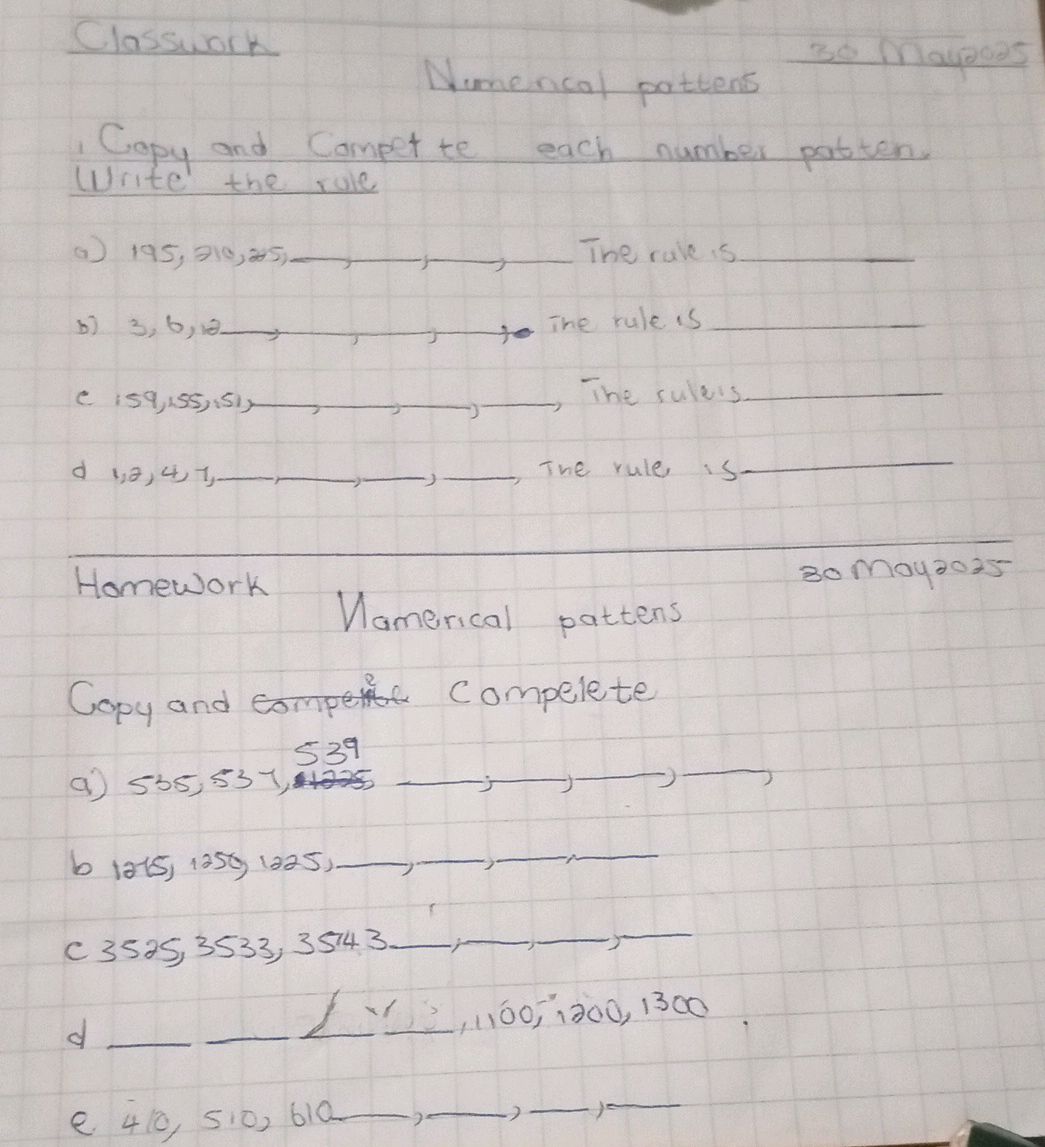 Classwork
30 May 2025
Numerical pattens
1 Copy and Compet te each number patten.
Write the rule
a) 195, 210, 225, ___, ___, ___, ___ The rule is ___
b) 3, 6, 12 ___, ___, ___, ___, The rule is ___
c 159, 155, 151, ___, ___, ___, ___, The rule is ___
d 1, 2, 4, 7, ___, ___, ___, ___, The rule is ___
Homework
30 May 2025
Namerical pattens
Copy and Compelete
539
a) 535, 537, ___, ___, ___, ___,
b 1275, 1250, 1225, ___, ___, ___, ___
c 3525, 3533, 3543 ___, ___, ___, ___
d ___ ___ ___ ___, 1100, 1200, 1300
e 410, 510, 610 ___, ___, ___, ___